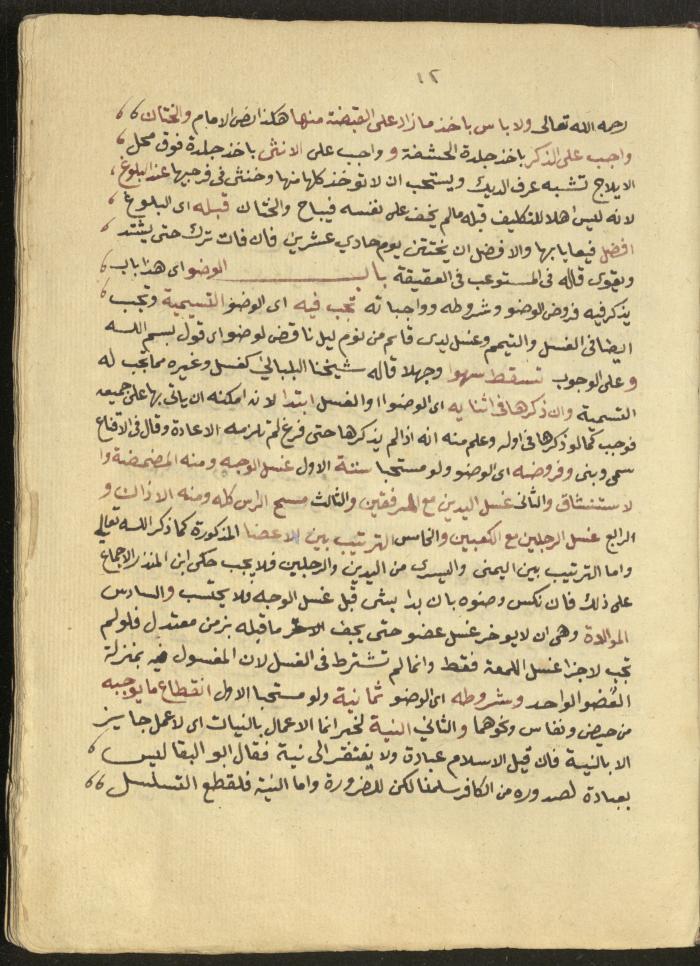 ١٢
رحمه الله تعالى ولا باس باخذ ما زاد على القبضة منها هكذا نص الامام والختان
واجب على الذكر باخذ جلدة الحشفة و واجب على الانثى باخذ جلدة فوق محل
الايلاج تشبه عرف الديك ويستحب ان لا توخذ كلها منها وخنثى في فرجيها عند البلوغ
لانه ليس اهلا للتكليف قبله مالم يخف على نفسه فيباح والختان قبله اى البلوغ
افضل فيعايا بها والافضل ان يختتن يوم حادي عشرين فان فات ترك حتى يشتد
ويقوى قاله في المستوعب في العقيقة باب الوضو اى هذا باب
يذكر فيه فروض الوضو وشروطه وواجباته تجب فيه اى الوضو التسمية وتجب
ايضا في الغسل والتيمم وغسل يدى قايم من نوم ليل ناقض لوضو اى قول بسم الله
وعلى الوجوب تسقط سهوا وجهلا قاله شيخنا البلباني كغسل وغيره مما تجب له
التسمية وان ذكرها في اثنايه اى الوضو او الغسل ابتدا لانه امكنه ان ياتي بها على جميعه
فوجب كما لو ذكرها في اوله وعلم منه انه اذا لم يذكرها حتى فرغ لم تلزمه الاعادة وقال في الاقناع
سمى وبنى وفروضه اى الوضو ولو مستحبا ستة الاول غسل الوجه ومنه المضمضة وا
لاستنشاق والثاني غسل اليدين مع المرفقين والثالث مسح الراس كله ومنه الاذنان و
الرابع غسل الرجلين مع الكعبين والخامس الترتيب بين الاعضا المذكورة كما ذكر الله تعالى
واما الترتيب بين اليمنى واليسرى من اليدين والرجلين فلا يجب حكى ابن المنذر الاجماع
على ذلك فان نكس وضوه بان بدا بشى قبل غسل الوجه فلا يحتسب والسادس
الموالاة وهى ان لا يوخر غسل عضو حتى يجف ما قبله بزمن معتدل فلو لم
تجب لاجزا غسل اللمعة فقط وانما لم تشترط في الغسل لان المغسول فيه بمنزلة
العضو الواحد وشروطه اى الوضو ثمانية ولو مستحبا الاول انقطاع ما يوجبه
من حيض ونفاس ونحوهما والثاني النية لخبر انما الاعمال بالنيات اى لا عمل جايز
الا بالنية فان قيل الاسلام عبادة ولا يفتقر الى نية فقال ابو البقا ليس
بعبادة لصدوره من الكافر سلمنا لكن للضرورة واما النية فلقطع التسلسل